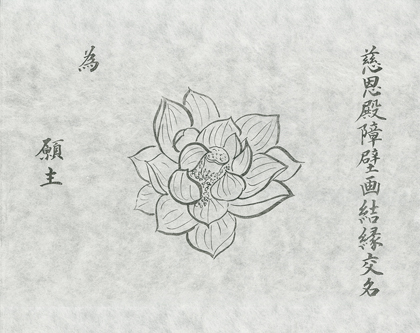 慈恩殿障壁画結縁交名
為
願主